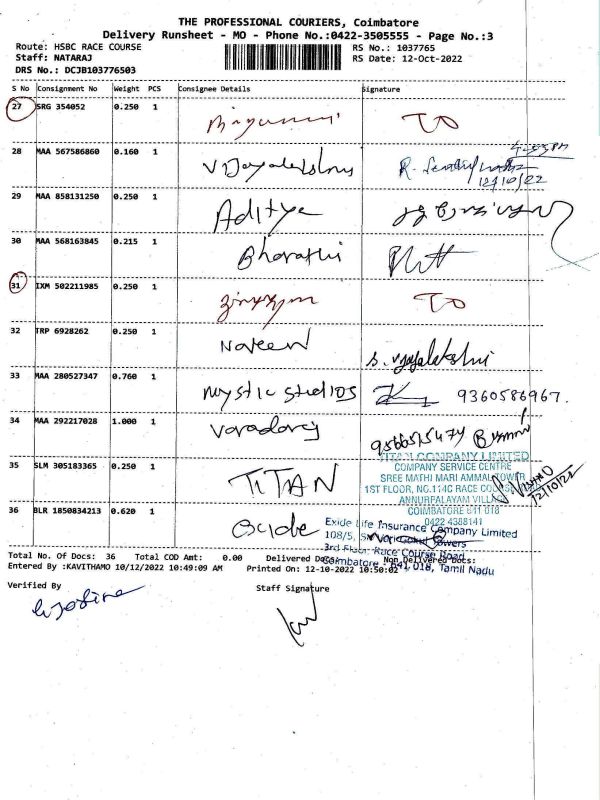 THE PROFESSIONAL COURIERS, Coimbatore
Delivery Runsheet - MO - Phone No.:0422-3505555 - Page No.:3
Route: HSBC RACE COURSE RS No.: 1037765
Staff: NATARAJ RS Date: 12-Oct-2022
DRS No.: DCJB103776503
S No Consignment No Weight PCS Consignee Details Signature
27 SRG 354052 0.250 1
4-55PM
28 MAA 567586860 0.160 1 Vijayalakshmi
12/10/22
29 MAA 858131250 0.250 1 Aditya
30 MAA 568163845 0.215 1 Bharathi
31 IXM 502211985 0.250 1
32 TRP 6928262 0.250 1 Naveen S. Vijayalakshmi
33 MAA 280527347 0.760 1 Mystic Studios 9360586967.
34 MAA 292217028 1.000 1 Varadaraj
TITAN COMPANY LIMITED
35 SLM 305183365 0.250 1 TITAN COMPANY SERVICE CENTRE
SREE MATHI MARI AMMAL TOWER
1ST FLOOR, NO.114C RACE COURSE
ANNURPALAYAM VILLAGE
12/10/22
COIMBATORE 641 018
0422 4388141
36 BLR 1850834213 0.620 1
Exide Life Insurance Company Limited
108/5, Towers
3rd Floor, Race Course Road,
Coimbatore - 641 018, Tamil Nadu
Total No. Of Docs: 36 Total COD Amt: 0.00 Delivered Docs: Non Delivered Docs:
Entered By :KAVITHAMO 10/12/2022 10:49:09 AM Printed On: 12-10-2022 10:50:02
Verified By Staff Signature